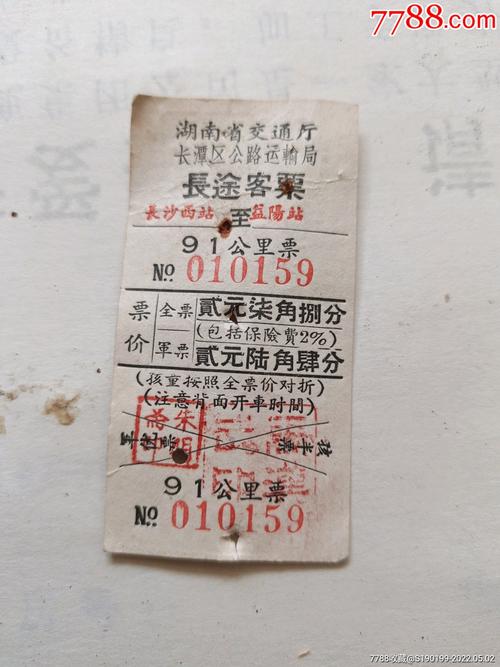 7788.com
湖南省交通厅
长潭区公路运輸局
長途客票
長沙西站 至 益陽站
91公里票
№ 010159
票价 全票 貳元柒角捌分
(包括保險費2%)
軍票 貳元陆角肆分
(孩童按照全票价对折)
(注意背面开車时间)
孩半票
91公里票
№ 010159
7788收藏@S190199-2022.05.02